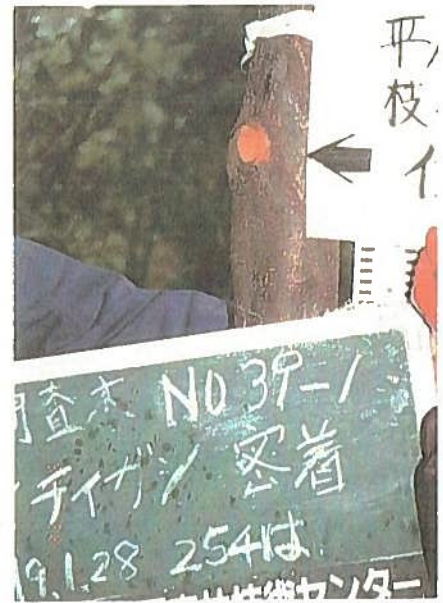 平
枝
イ
調査木 NO 39-1
イチイガシ 密着
19.1.28 254は
技術センター